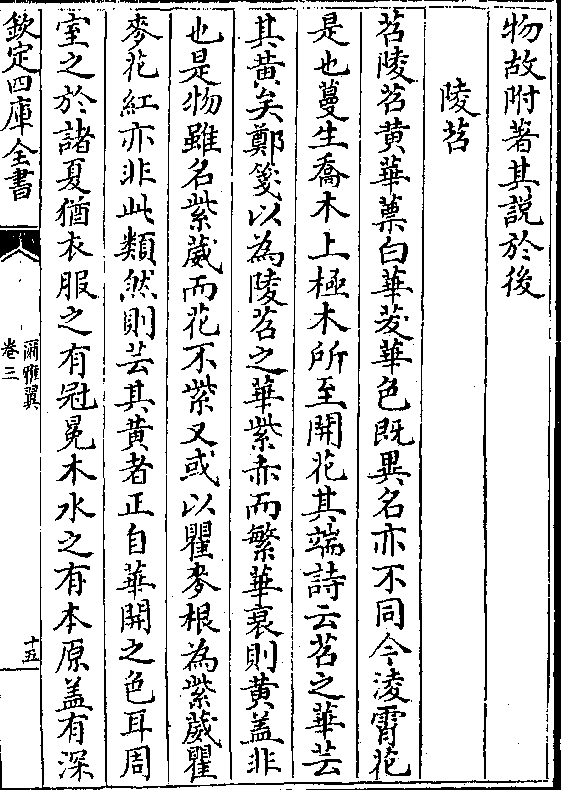 物故附著其說於後
陵苕
苕陵苕黄華蔈白華茇華色既異名亦不同今凌霄花
是也蔓生喬木上極木所至開花其端詩云苕之華芸
其黄矣鄭箋以為陵苕之華紫赤而繁華衰則黄盖非
也是物雖名紫葳而花不紫又或以瞿麥根為紫葳瞿
麥花紅亦非此類然則芸其黄者正自華開之色耳周
室之於諸夏猶衣服之有冠冕木水之有本原盖有深
欽定四庫全書
爾雅翼
卷三
十五